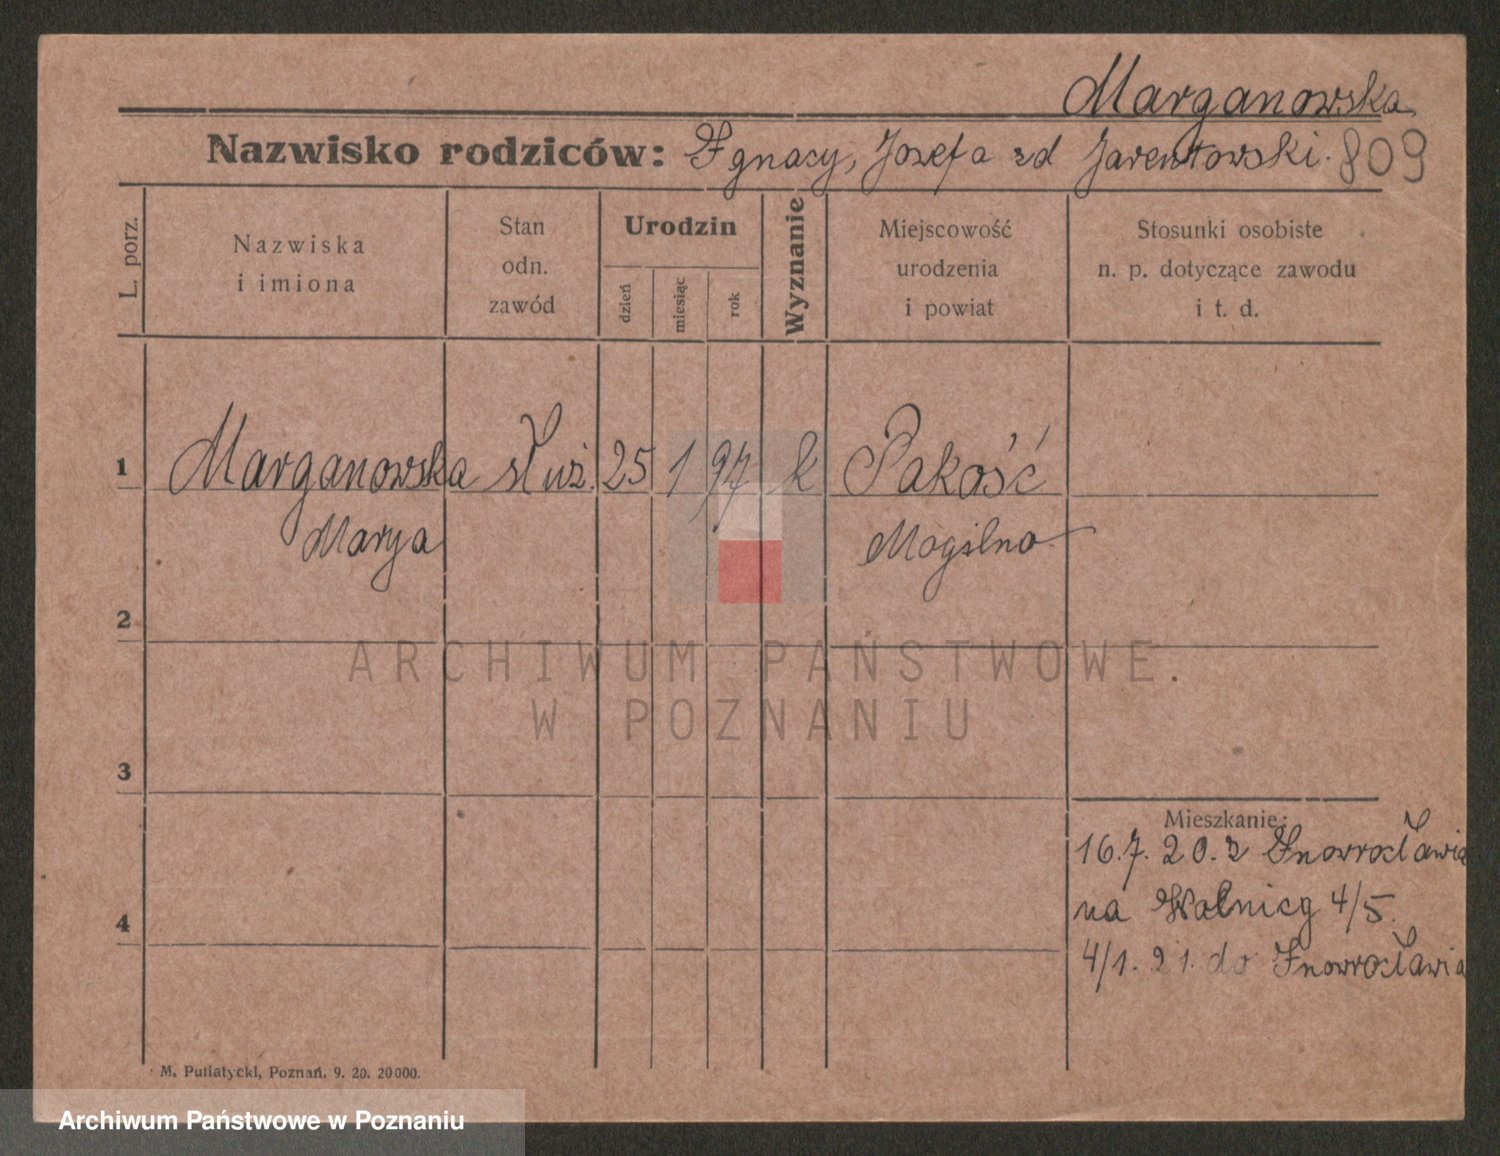 Marganowska
Nazwisko rodziców: Ignacy, Jozefa zd Jarentowski. 809
L. porz.
Nazwiska
i imiona
Stan
odn.
zawód
Urodzin
dzień
miesiąc
rok
Wyznanie
Miejscowość
urodzenia
i powiat
Stosunki osobiste
n. p. dotyczące zawodu
i t. d.
1 Marganowska służ. 25 1 97 k Pakość
Marya Mogilno
2
ARCHIWUM PAŃSTWOWE
W POZNANIU
3
Mieszkanie:
16.7.20. z Inowrocławia
na Wolnicy 4/5.
4
4/1.21. do Inowrocławia
M. Putiatycki, Poznań. 9. 20. 20000.
Archiwum Państwowe w Poznaniu